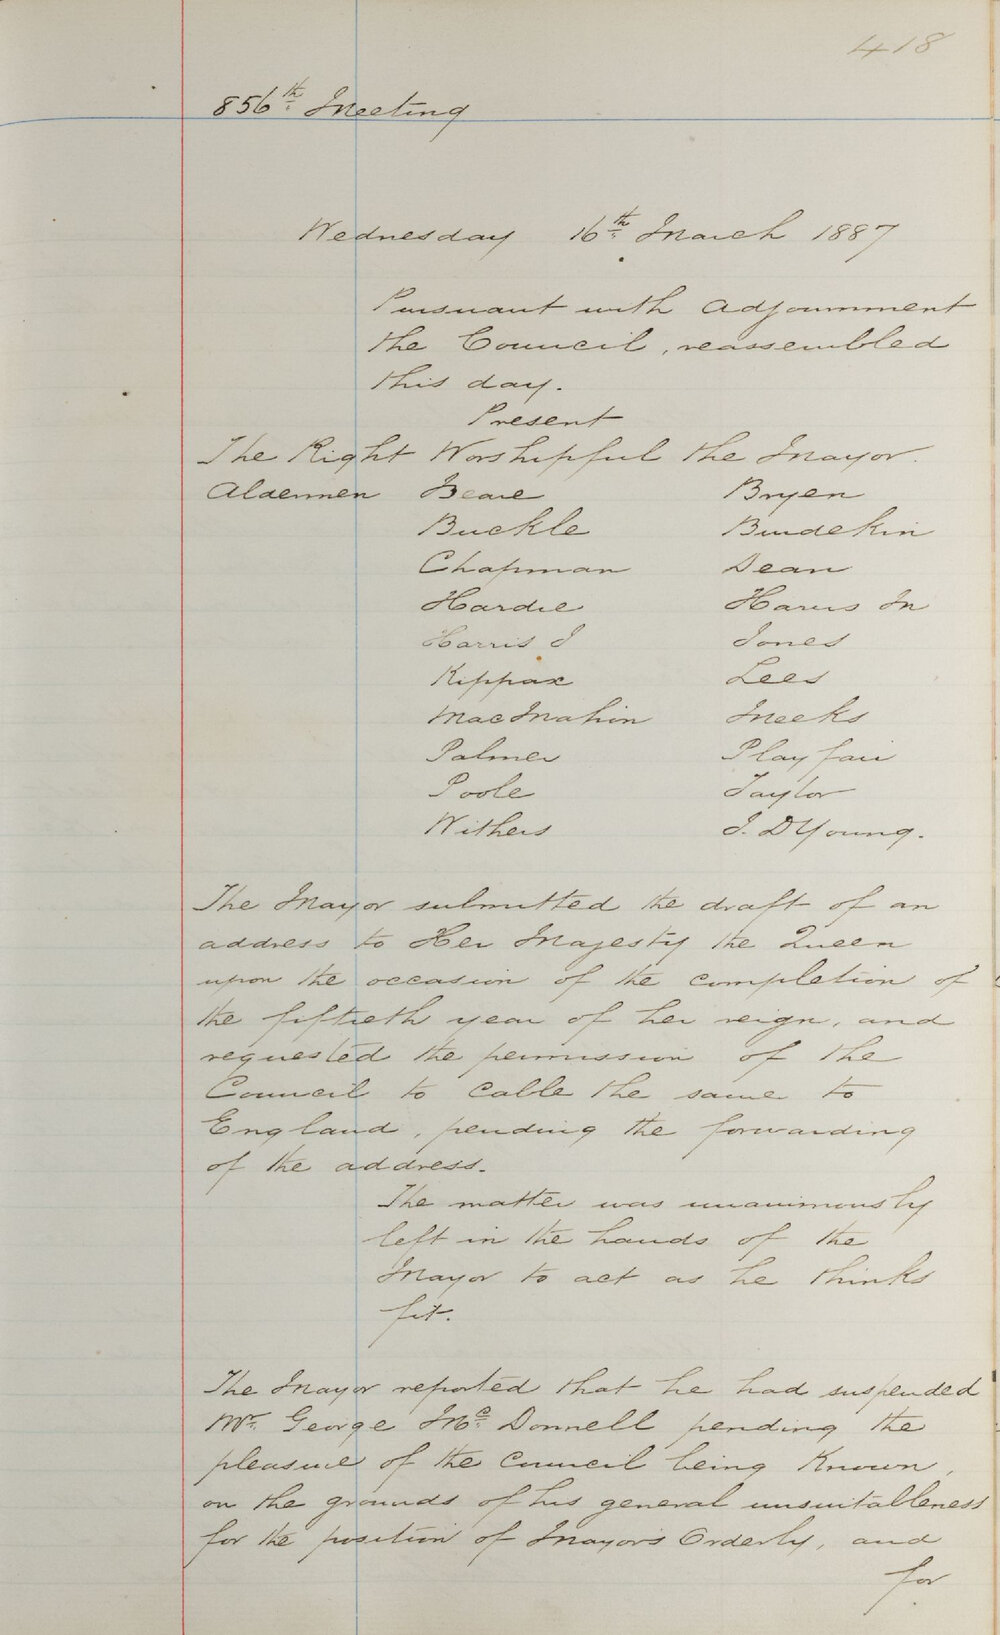 418
856th. Meeting
Wednesday 16th. March 1887
Pursuant with adjournment
the Council, reassembled
this day.
Present
The Right Worshipful the Mayor.
Aldermen Beare Bryen
Buckle Burdekin
Chapman Dean
Hardie Harris Jn
Harris J Jones
Kippax Lees
MacMahon Meeks
Palmer Playfair
Poole Taylor
Withers J. D Young.
The Mayor submitted the draft of an
address to Her Majesty the Queen
upon the occasion of the completion of
the fiftieth year of her reign, and
requested the permission of the
Council to cable the same to
England, pending the forwarding
of the address.
The matter was unanimously
left in the hands of the
Mayor to act as he thinks
fit.
The Mayor reported that he had suspended
Mr. George Mc. Donnell pending the
pleasure of the Council being Known,
on the grounds of his general unsuitableness
for the position of Mayor's Orderly, and
for